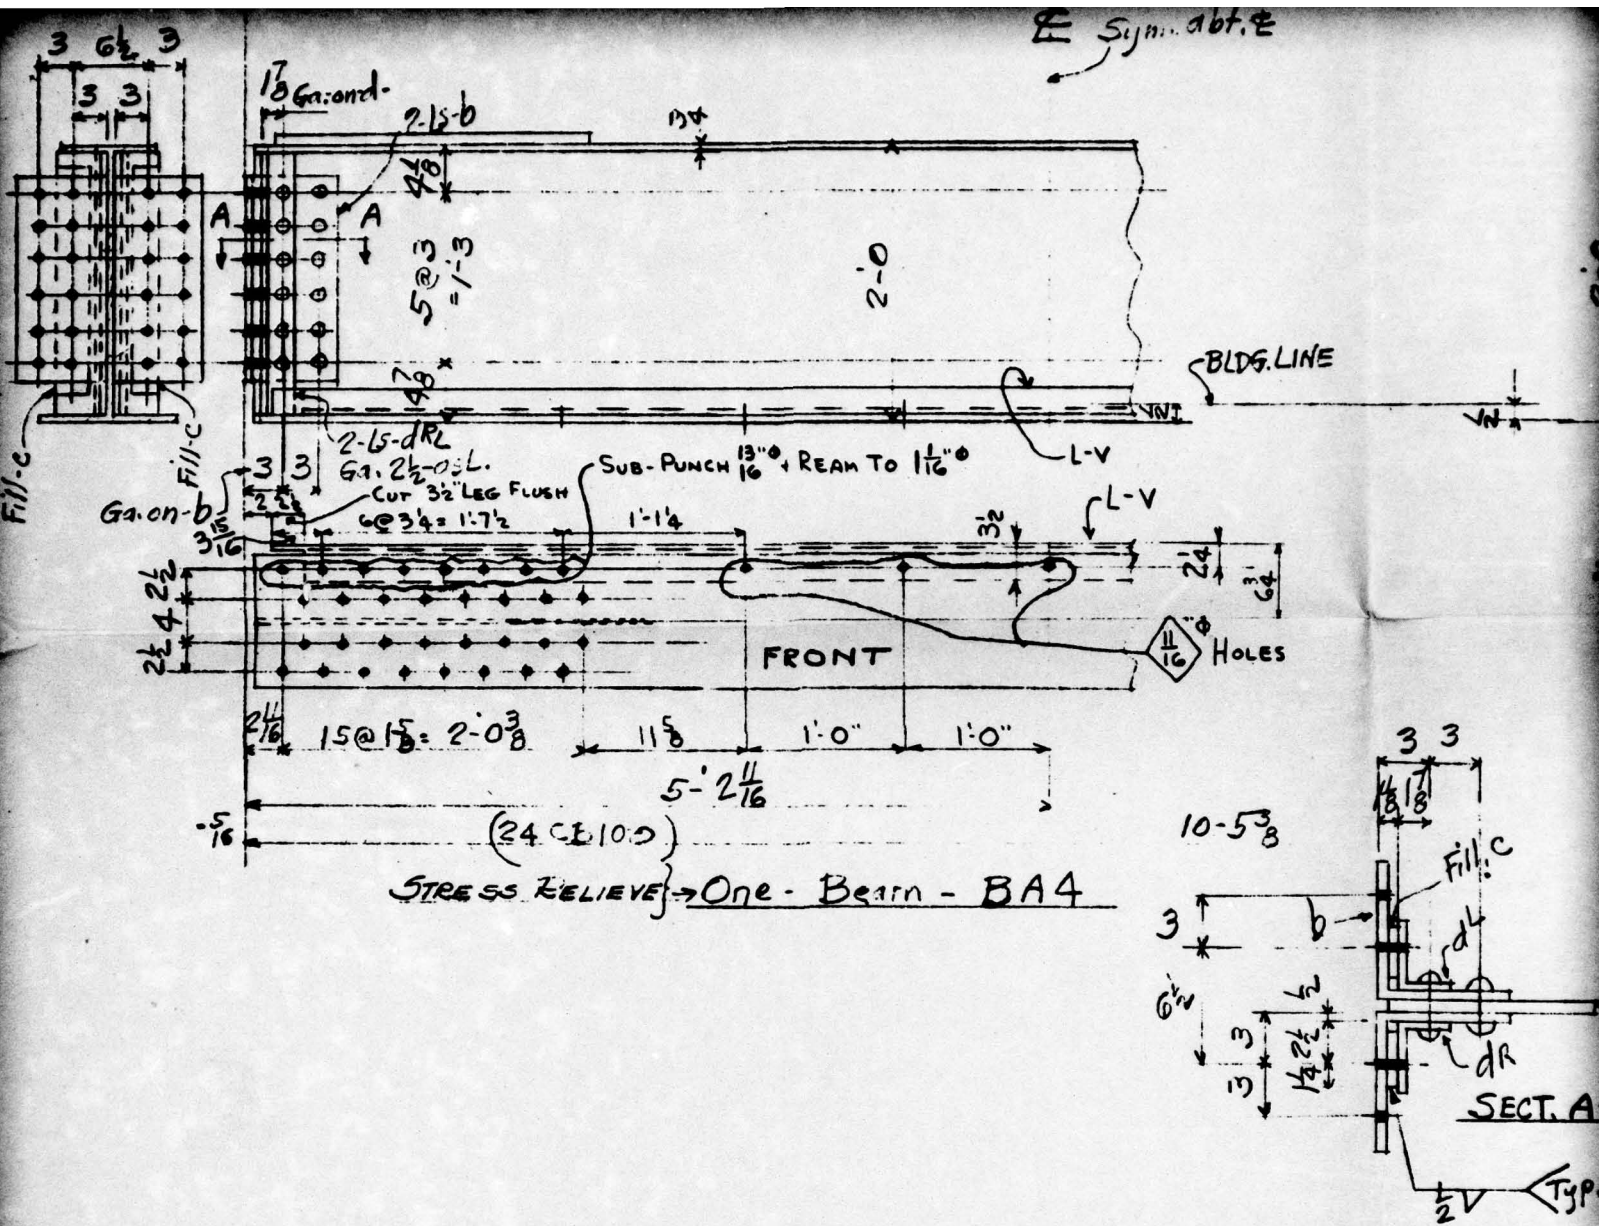 Symm. abt. ℄
3 6½ 3
3 3
1⅞ Ga. on d-
2-Ls-b
¾
4⅛
A A
5@3
=1'-3
2'-0
4⅞
BLDG. LINE
Fill-c
Fill-c
2-Ls-dRL
Ga. 2½-osL.
L-V
3 3
SUB-PUNCH 13/16"⌀ & REAM TO 1 1/16"⌀
CUT 3½" LEG FLUSH
Ga. on-b
3 15/16
6@3¼=1'-7½
1'-1¼
3½
L-V
2¼
2½
4
2½
FRONT
11/16"⌀ HOLES
2 11/16
15@1⅝=2'-0⅜
11⅝
1'-0"
1'-0"
5'-2 11/16
-5/16
(24 CB 100)
10-5⅜
STRESS RELIEVE}→One-Beam-BA4
3 3
1⅛ 1⅞
Fill-C
3
b
dL
6½
½
3
2½
1¼
3
dR
SECT. A
½
TYP.